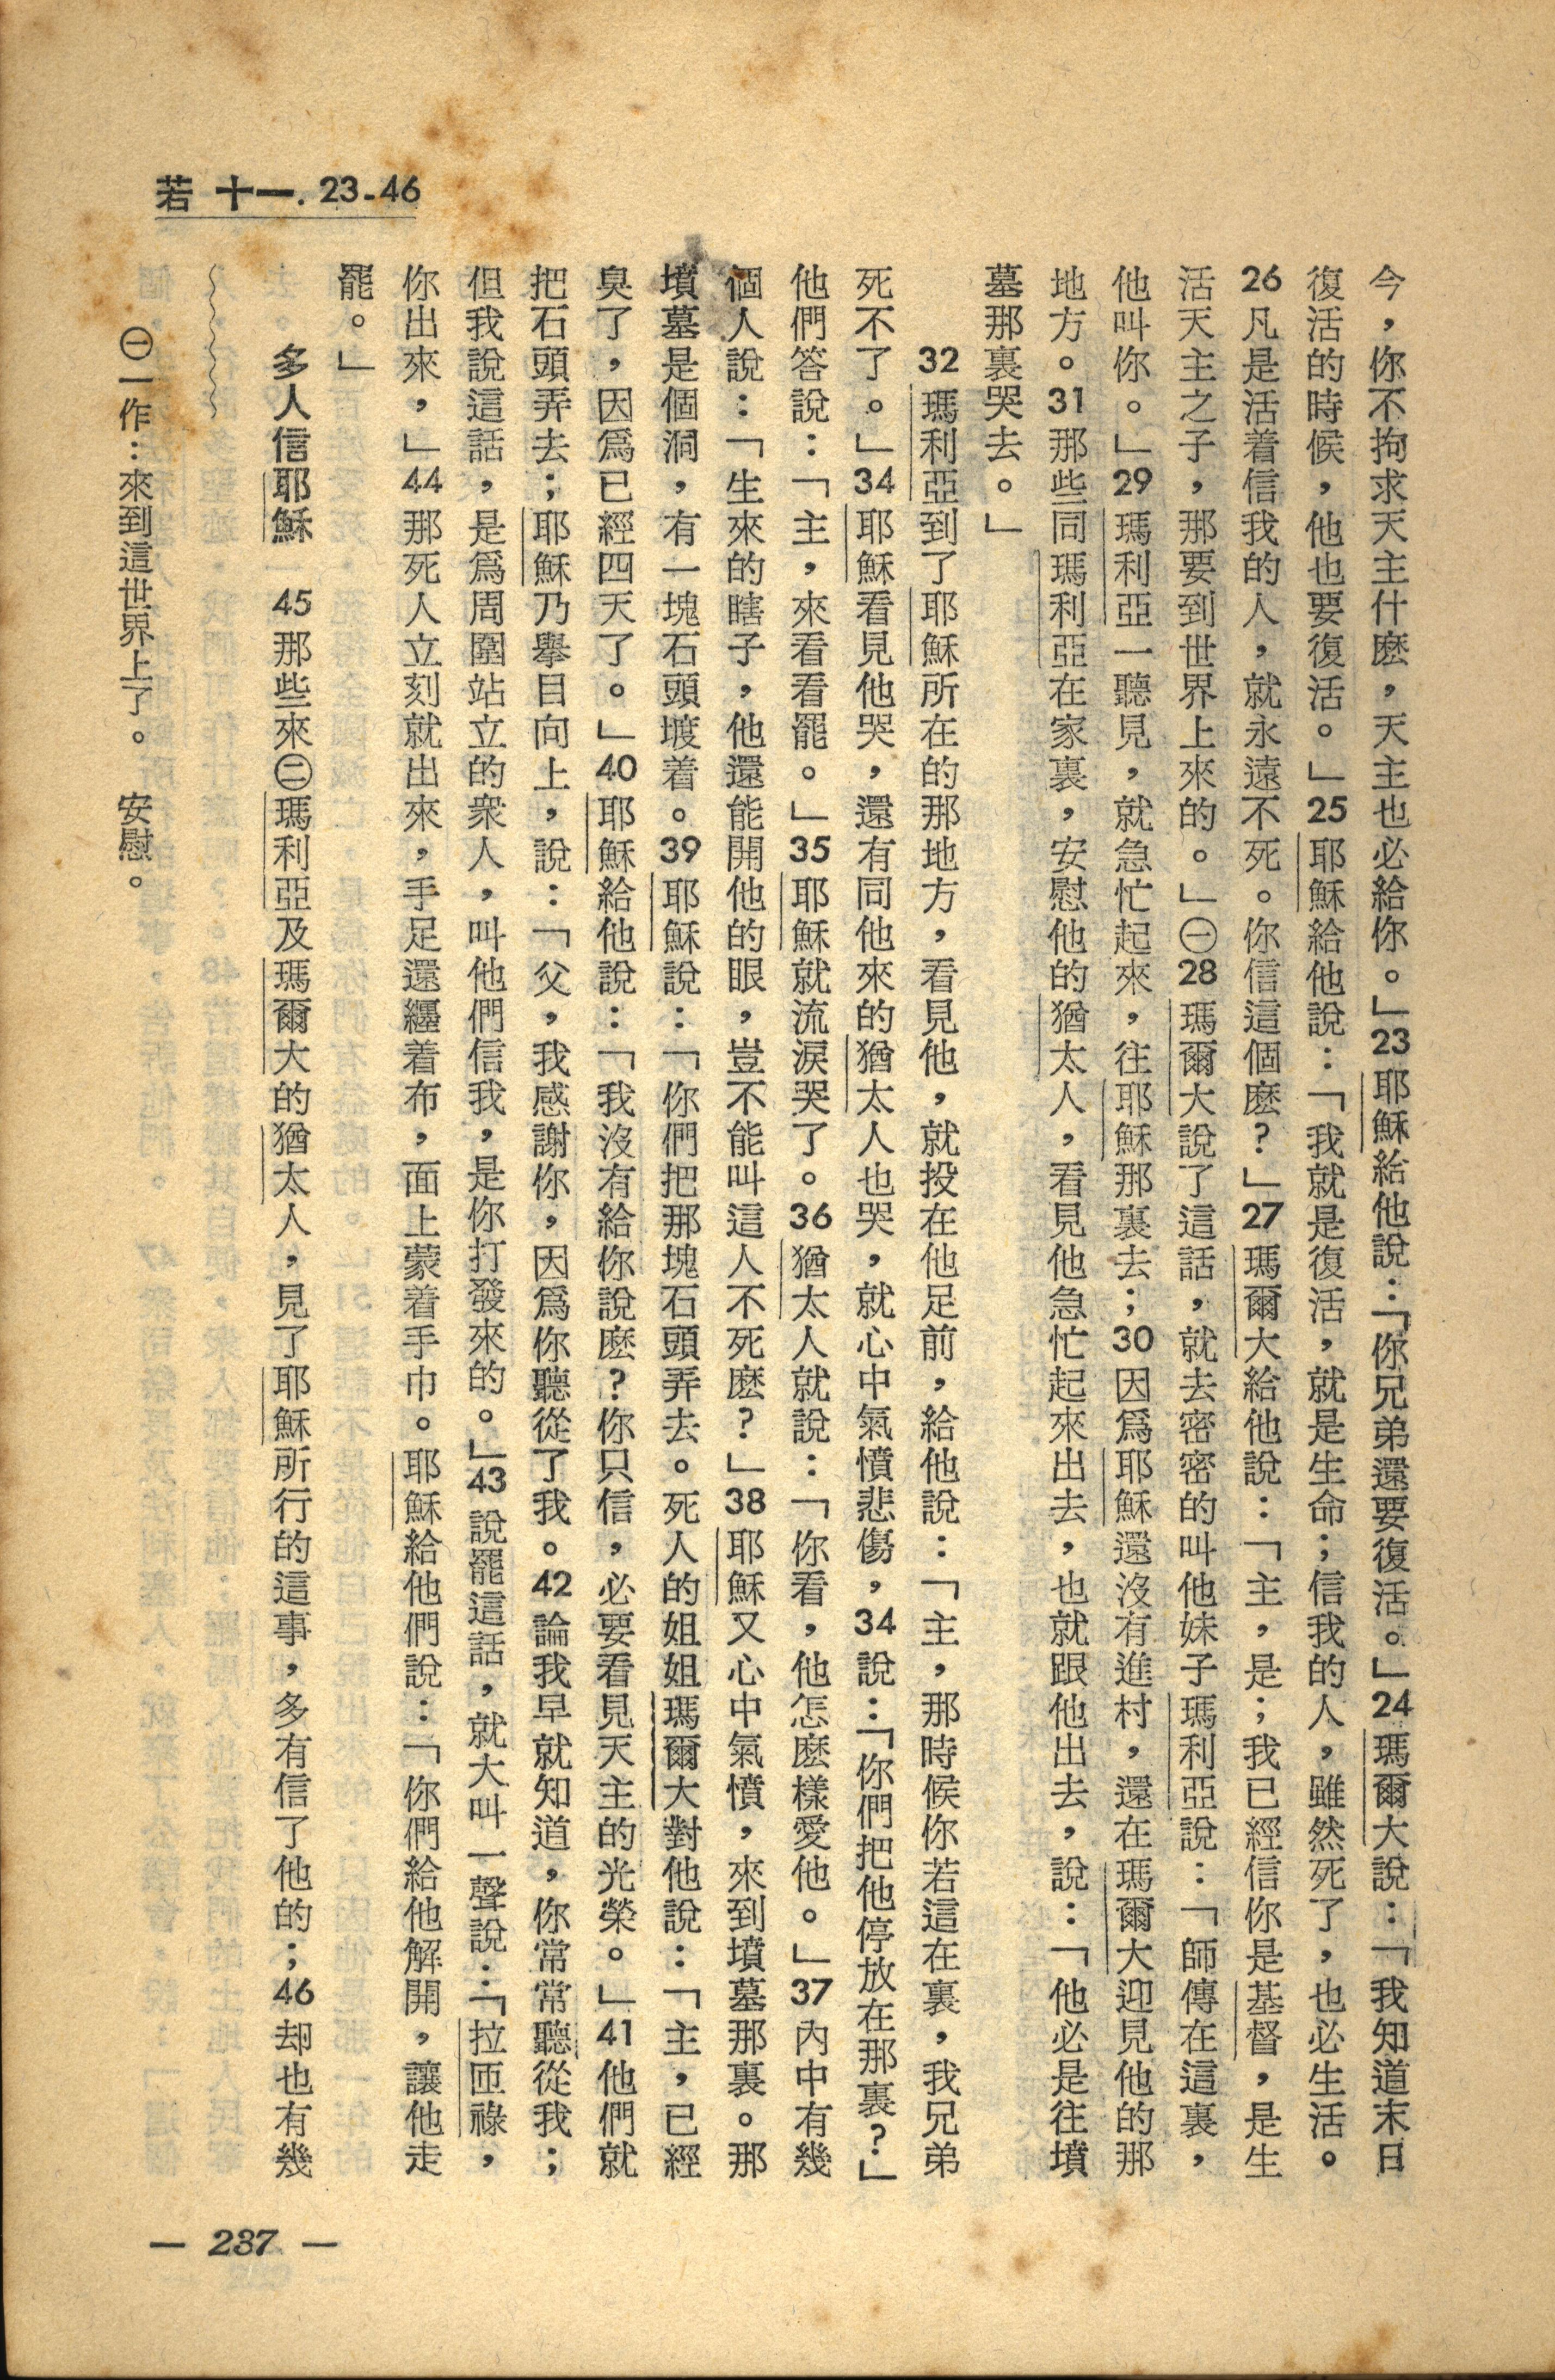 若 十一. 23-46
今，你不拘求天主什麽，天主也必給你。」23耶穌給他說：「你兄弟還要復活。」24瑪爾大說：「我知道末日
復活的時候，他也要復活。」25耶穌給他說：「我就是復活，就是生命；信我的人，雖然死了，也必生活。
26凡是活着信我的人，就永遠不死。你信這個麽？」27瑪爾大給他說：「主，是；我已經信你是基督，是生
活天主之子，那要到世界上來的。」㊀28瑪爾大說了這話，就去密密的叫他妹子瑪利亞說：「師傅在這裏，
他叫你。」29瑪利亞一聽見，就急忙起來，往耶穌那裏去；30因爲耶穌還沒有進村，還在瑪爾大迎見他的那
地方。31那些同瑪利亞在家裏，安慰他的猶太人，看見他急忙起來出去，也就跟他出去，說：「他必是往墳
墓那裏哭去。」
32瑪利亞到了耶穌所在的那地方，看見他，就投在他足前，給他說：「主，那時候你若這在裏，我兄弟
死不了。」34耶穌看見他哭，還有同他來的猶太人也哭，就心中氣憤悲傷，34說：「你們把他停放在那裏？」
他們答說：「主，來看看罷。」35耶穌就流淚哭了。36猶太人就說：「你看，他怎麽樣愛他。」37內中有幾
個人說：「生來的瞎子，他還能開他的眼，豈不能叫這人不死麽？」38耶穌又心中氣憤，來到墳墓那裏。那
墳墓是個洞，有一塊石頭堵着。39耶穌說：「你們把那塊石頭弄去。死人的姐姐瑪爾大對他說：「主，已經
臭了，因爲已經四天了。」40耶穌給他說：「我沒有給你說麽？你只信，必要看見天主的光榮。」41他們就
把石頭弄去；耶穌乃擧目向上，說：「父，我感謝你，因爲你聽從了我。42論我早就知道，你常常聽從我；
但我說這話，是爲周圍站立的衆人，叫他們信我，是你打發來的。」43說罷這話，就大叫一聲說：「拉匝祿，
你出來，」44那死人立刻就出來，手足還纏着布，面上蒙着手巾。耶穌給他們說：「你們給他解開，讓他走
罷。」
多人信耶穌　45那些來㊁瑪利亞及瑪爾大的猶太人，見了耶穌所行的這事，多有信了他的；46却也有幾
㊀一作：來到這世界上了。 安慰。
— 237 —